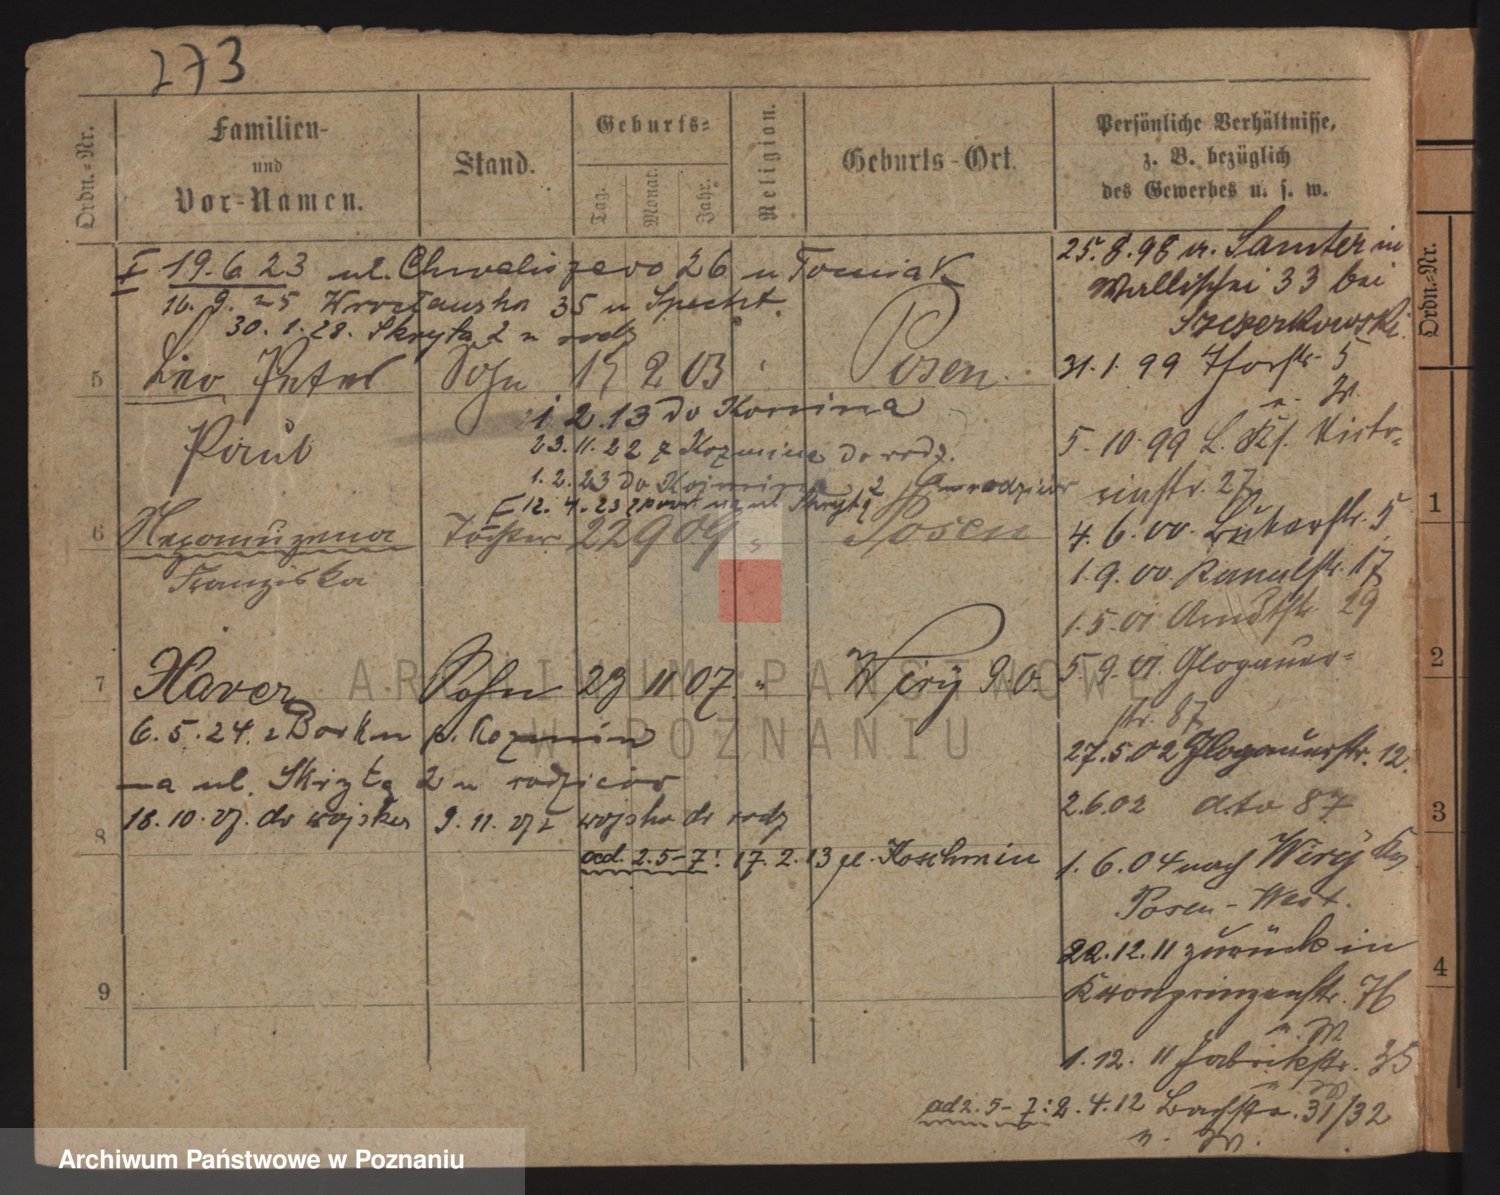 273
Ordn.-Nr.
Familien-
und
Vor-Namen.
Stand.
Geburts-
Tag.
Monat.
Jahr.
Religion.
Geburts-Ort.
Persönliche Verhältnisse,
z. B. bezüglich
des Gewerbes u. s. w.
I 19.6.23 ul. Chwaliszewo 26 u Tomiak
16.9.25 Wrocławska 35 u Specht.
30.1.28. Skryta 2 u rodz
5 Leo Peter Sohn 17 2 03 Posen.
Paul
1.2.13 do Konina
23.11.22 z Kozmina do rodz.
1.2.23 do Kozmina
I 12.4.23 ul Skryta 2 u rodziców
6 Nepomuzena Tochter 22 9 09 Posen
Franziska
7 Xaver Sohn 29 11 07. " Wiry P.O.
6.5.24. z Borku p. Kozmin
na ul. Skryta 2 u rodziców
8 18.10.27. do wojska 9.11.27 z wojska do rodz
ad. 2.5-7: 17.2.13 Koschmin
9
25.8.98 v. Samter in
Wallischei 33 bei
31.1.99 Thorstr. 5
n. W.
5.10.99 Victo-
riastr. 27
4.6.00. Bukerstr. 5
1.9.00. Kanalstr. 17
1.5.01 Arndtstr 29
5.9.01 Glogauer-
str. 87
27.5.02 Glogauerstr. 12.
2.6.02 dto 87
1.6.04 nach Wiry Kr.
Posen-West.
22.12.11 zurück in
Kronprinzenstr. 76
n. W
1.12.11 Fabrikstr. 35
n. W
ad 2.5-7: 2.4.12 Bachstr. 31/32
n. W.
Ordn.-Nr.
1
2
3
4
ARCHIWUM PAŃSTWOWE
W POZNANIU
Archiwum Państwowe w Poznaniu